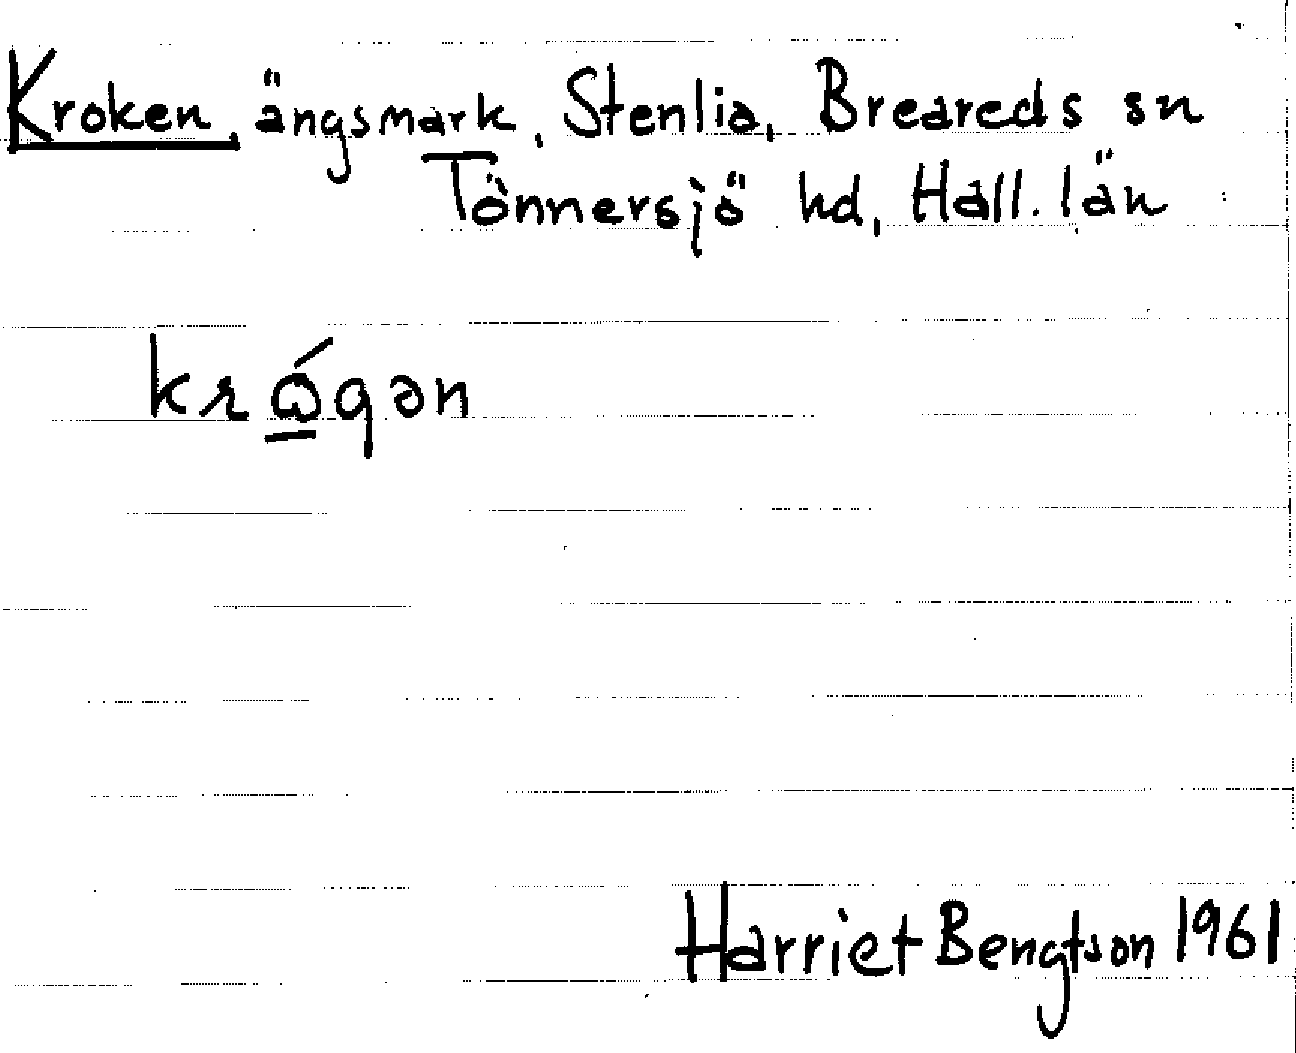 Kroken, ängsmark, Stenlia, Breareds sn
Tönnersjö hd, Hall. län
krǫ́gən
Harriet Bengtson 1961